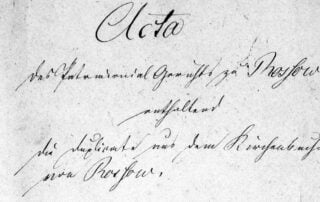 Acta
des Patrimonial Gerichts zu Rossow
enthaltend
die Duplicate aus dem Kirchenbuche
von Rossow.